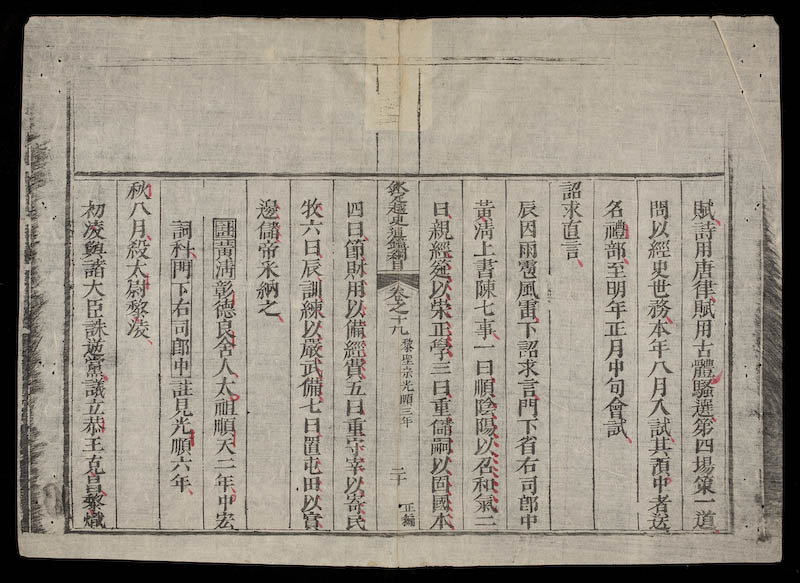 賦詩用唐律賦用古體騷選第四場策一道
問以經史世務本年八月入試其預中者送
名禮部至明年正月中旬會試
詔求直言
辰因雨雹風雷下詔求言門下省右司郎中
黃淸上書陳七事一曰順陰陽以召和氣二
曰親經筵以崇正學三曰重儲嗣以固國本
欽定越史通鑑綱目 卷之十九 黎聖宗光順三年 二十 正編
四曰節財用以備經費五曰重守宰以寄民
牧六曰辰訓練以嚴武備七曰置屯田以實
邊儲帝采納之
註黃淸彰德良舍人太祖順天二年中宏
詞科門下右司郎中註見光順六年
秋八月殺太尉黎凌
初凌與諸大臣誅逆黨議立恭王克昌黎熾